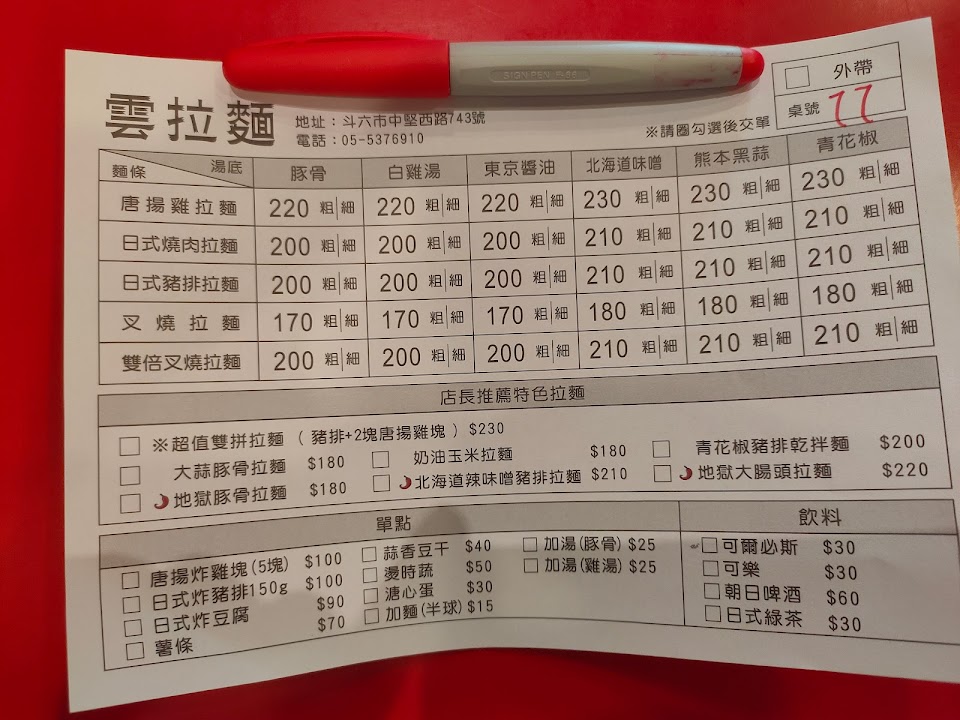 SIGN PEN
外帶
雲拉麵
地址：斗六市中堅西路743號
桌號 77
電話：05-5376910
※請圈勾選後交單
麵條 湯底 豚骨 白雞湯 東京醬油 北海道味噌 熊本黑蒜 青花椒
唐揚雞拉麵 220 粗|細 220 粗|細 220 粗|細 230 粗|細 230 粗|細 230 粗|細
日式燒肉拉麵 200 粗|細 200 粗|細 200 粗|細 210 粗|細 210 粗|細 210 粗|細
日式豬排拉麵 200 粗|細 200 粗|細 200 粗|細 210 粗|細 210 粗|細 210 粗|細
叉燒拉麵 170 粗|細 170 粗|細 170 粗|細 180 粗|細 180 粗|細 180 粗|細
雙倍叉燒拉麵 200 粗|細 200 粗|細 200 粗|細 210 粗|細 210 粗|細 210 粗|細
店長推薦特色拉麵
※超值雙拼拉麵（豬排+2塊唐揚雞塊）$230
大蒜豚骨拉麵 $180 奶油玉米拉麵 $180 青花椒豬排乾拌麵 $200
地獄豚骨拉麵 $180 北海道辣味噌豬排拉麵 $210 地獄大腸頭拉麵 $220
單點
唐揚炸雞塊(5塊) $100 蒜香豆干 $40 加湯(豚骨) $25
日式炸豬排150g $100 燙時蔬 $50 加湯(雞湯) $25
日式炸豆腐 $90 溏心蛋 $30
薯條 $70 加麵(半球) $15
飲料
可爾必斯 $30
可樂 $30
朝日啤酒 $60
日式綠茶 $30